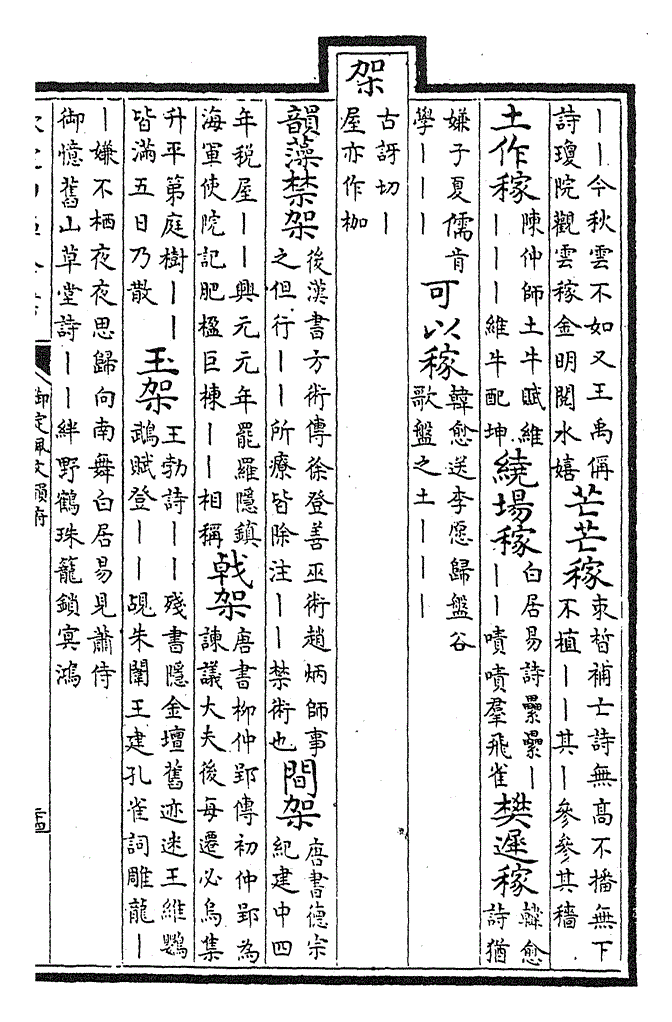 ｜｜今秋雲不如又王禹偁
詩瓊院觀雲稼金明閱水嬉
芒芒稼
束晳補亡詩無高不播無下
不植｜｜其｜參參其穡
土作稼
陳仲師土牛賦維
｜｜｜維牛配坤
繞場稼
白居易詩纍纍｜
｜｜嘖嘖羣飛雀
樊遲稼
韓愈
詩猶
嫌子夏儒肯
學｜｜｜
可以稼
韓愈送李愿歸盤谷
歌盤之土｜｜｜
架
古訝切｜
屋亦作枷
韻藻
禁架
後漢書方術傳徐登善巫術趙炳師事
之但行｜｜所療皆除注｜｜禁術也
間架
唐書德宗
紀建中四
年稅屋｜｜興元元年罷羅隱鎮
海軍使院記肥楹巨棟｜｜相稱
戟架
唐書柳仲郢傳初仲郢為
諫議大夫後每遷必烏集
升平第庭樹｜｜
皆滿五日乃散
玉架
王勃詩｜｜殘書隱金壇舊迹迷王維鸚
鵡賦登｜｜覘朱闈王建孔雀詞雕龍｜
｜嫌不栖夜夜思歸向南舞白居易見蕭侍
御憶舊山草堂詩｜｜絆野鶴珠籠鎖冥鴻
御定佩文韻府